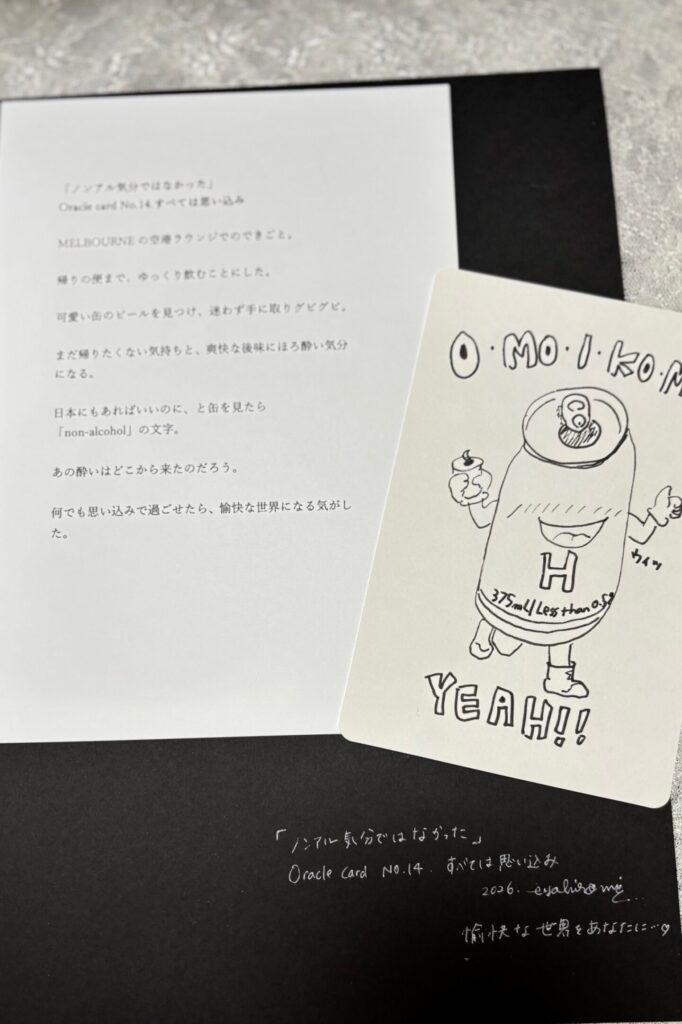 「ノンアル気分ではなかった」
Oracle card No.14.すべては思い込み
MELBOURNEの空港ラウンジでのできごと。
帰りの便まで、ゆっくり飲むことにした。
可愛い缶のビールを見つけ、迷わず手に取りグビグビ。
まだ帰りたくない気持ちと、爽快な後味にほろ酔い気分
になる。
日本にもあればいいのに、と缶を見たら
「non-alcohol」の文字。
あの酔いはどこから来たのだろう。
何でも思い込みで過ごせたら、愉快な世界になる気がし
た。
O・MO・I・KO・M
ウィッ
H
375ml/Less than 0.5
YEAH!!
「ノンアル気分ではなかった」
Oracle card NO.14. すべては思い込み
2026.
愉快な世界をあなたに…♡